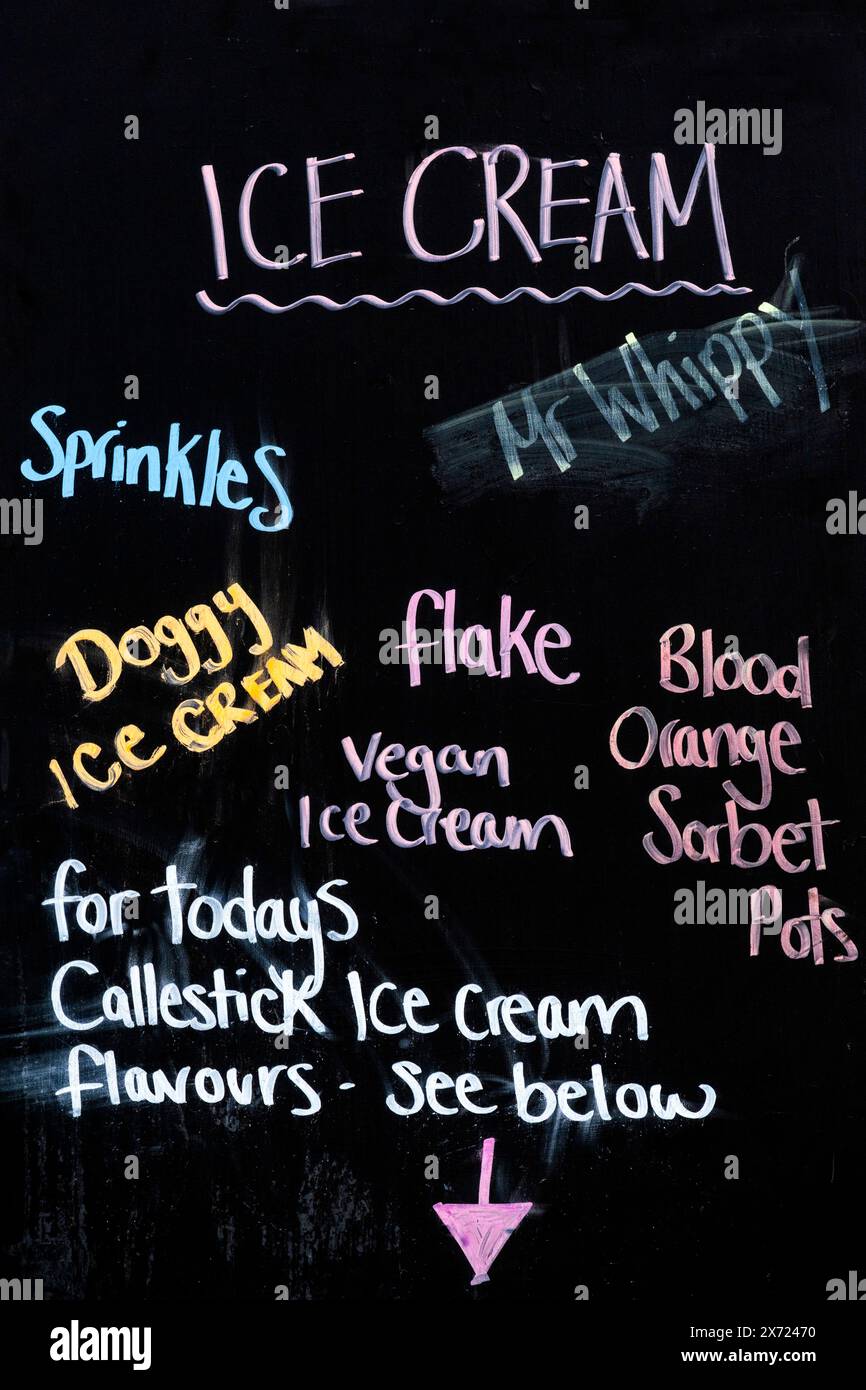 ICE CREAM
Mr Whippy
Sprinkles
Doggy
ICE CREAM
flake
Vegan
Ice Cream
Blood
Orange
Sorbet
Pots
for todays
Callestick Ice Cream
flavours - see below
alamy
Image ID: 2X72470
www.alamy.com